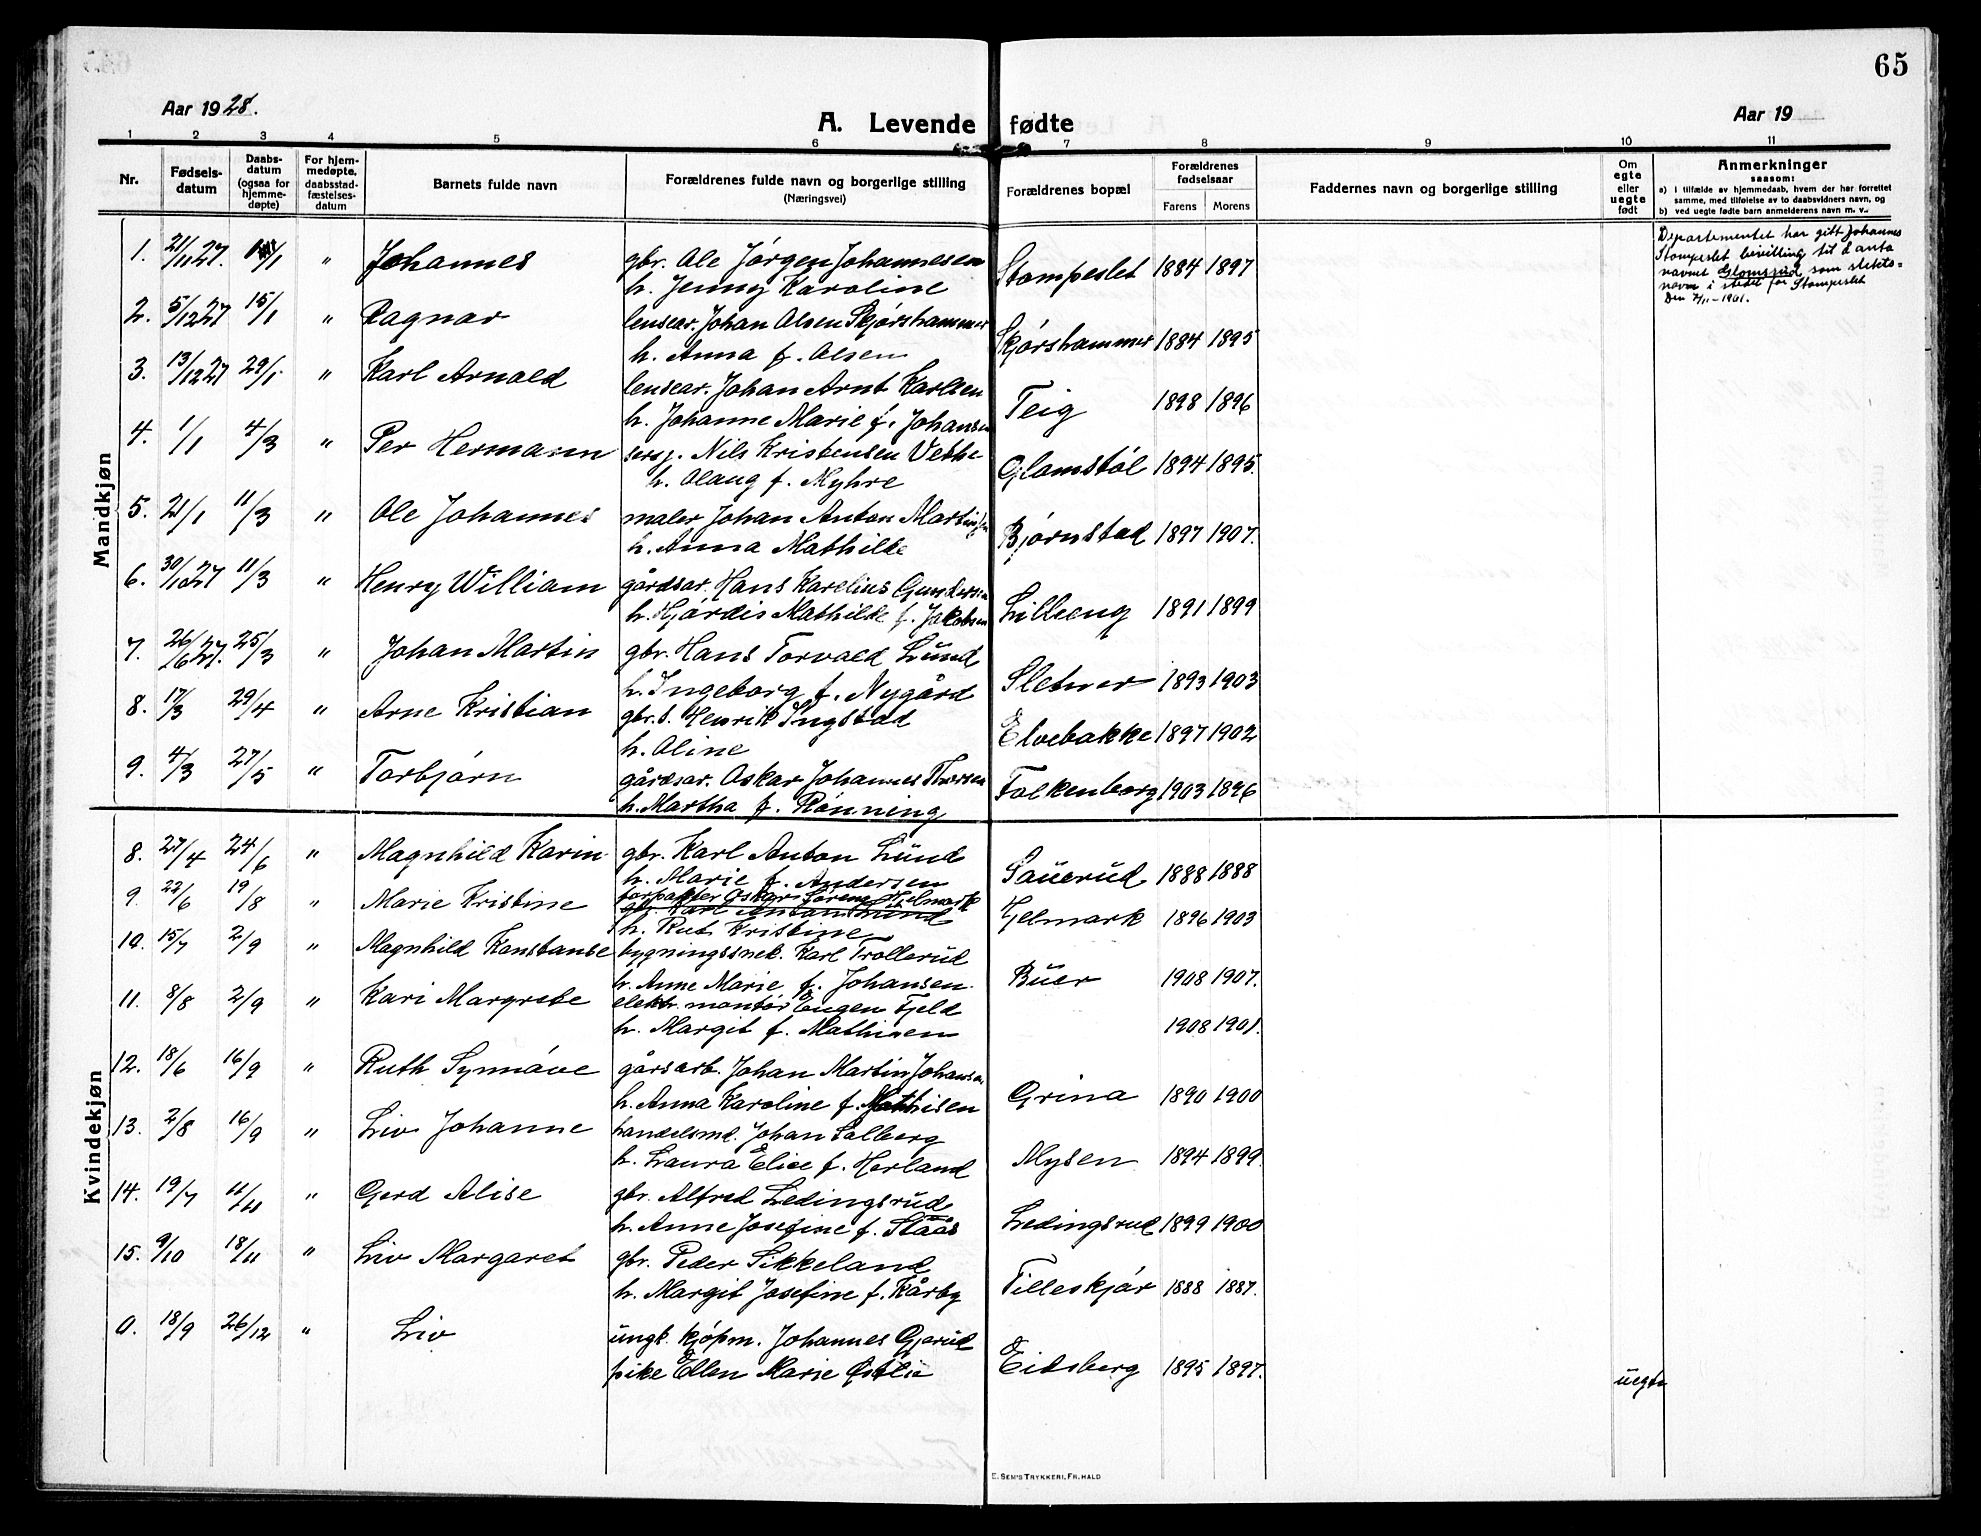 65
Aar 1928.
A. Levende fødte
Aar 19
1 2 3 4 5 6 7 8 9 10 11
Nr.
Fødsels-
datum
Daabs-
datum
(ogsaa for
hjemme-
døpte)
For hjem-
medøpte,
daabsstad-
fæstelses-
datum
Barnets fulde navn
Forældrenes fulde navn og borgerlige stilling
(Næringsvei)
Forældrenes bopæl
Forældrenes
fødselsaar
Farens Morens
Faddernes navn og borgerlige stilling
Om
egte
eller
uegte
født
Anmerkninger
saasom:
a) i tilfælde av hjemmedaab, hvem der har forrettet
samme, med tilføielse av to daabsvidners navn, og
b) ved uegte fødte barn anmelderens navn m. v.
Mandkjøn
1. 21/11 27. /1 " Johannes gbr. Ole Jørgen Johannesen Stompeslet 1884 1897
h. Jenny Karoline
Departementet har gitt Johannes
Stompeslet bevilling til å anta
navnet Glomsrud som slekts=
navn i stedet for Stompeslet
Den 7/11-1901.
2. 5/12 27 15/1 " Ragnar lensear. Johan Olsen Skjørshammer Skjørshammer 1884 1895
h. Anna f. Olsen
3. 13/12 27 29/1 " Karl Arnold lensear. Johan Arnt Karlsen Teig 1898 1896
h. Johanne Marie f. Johansen
4. 1/1 4/3 " Per Hermann sersj. Nils Kristensen Vethe Glomstøl 1894 1895.
h. Olaug f. Myhre
5. 21/1 11/3 " Ole Johannes maler Johan Anton Martinsen Bjørnstad 1897 1907.
h. Anna Mathilde
6. 30/10 27 11/3 " Henry William gårdsar. Hans Karelius Gundersen Lilleeng 1891 1899
h. Hjørdis Mathilde f. Jakobsen
7. 26/6 27. 25/3 " Johan Martin gbr. Hans Torvald Lund Sletner 1893 1903
h. Ingeborg f. Nygård
8. 17/3 29/4 " Arne Kristian gbr.s. Henrik Ingstad Elvebakke 1897 1902
h. Oline
9. 4/3 27/5 " Torbjørn gårdsar. Oskar Johannes Thorsen Falkenborg 1903 1896
h. Martha f. Rønning
Kvindekjøn
8. 27/4 24/6 " Magnhild Karin gbr. Karl Anton Lund Sauerud 1888 1888
h. Marie f. Andersen
9. 22/6 19/8 " Marie Kristine forpakter Oskar Sørens Hjelmark Hjelmark 1896 1903
gbr. Karl Anton Lund
h. Rut Kristine
10. 15/7 2/9 " Magnhild Konstanse bygningssnek. Karl Trollerud Buer 1908 1907.
h. Anne Marie f. Johansen.
11. 8/8 2/9 " Kari Margrete elektr. montør Eugen Fjeld 1908 1901.
h. Margit f. Mathisen
12. 18/6 16/9 " Ruth Synnøve gårsarb. Johan Martin Johansen Grina 1890 1900
h. Anna Karoline f. Mathisen
13. 2/8 16/9 " Liv Johanne handelsmd. Johan Solberg Mysen 1894 1899.
h. Laura Elise f. Herland
14. 19/7 11/11 " Gerd Alise gbr. Alfred Ledingsrud Ledingsrud 1899 1900
h. Anne Josefine f. Staås
15. 9/10 18/11 " Liv Margaret gbr. Peder Sikkeland Tilleskjør 1888 1887.
h. Margit Josefine f. Kårby
0. 18/9 26/12 " Liv ungk. kjøpm. Johannes Gjerud Eidsberg 1895 1897. uegte
pike Ellen Marie Østlie
E. SEM'S TRYKKERI, FR. HALD